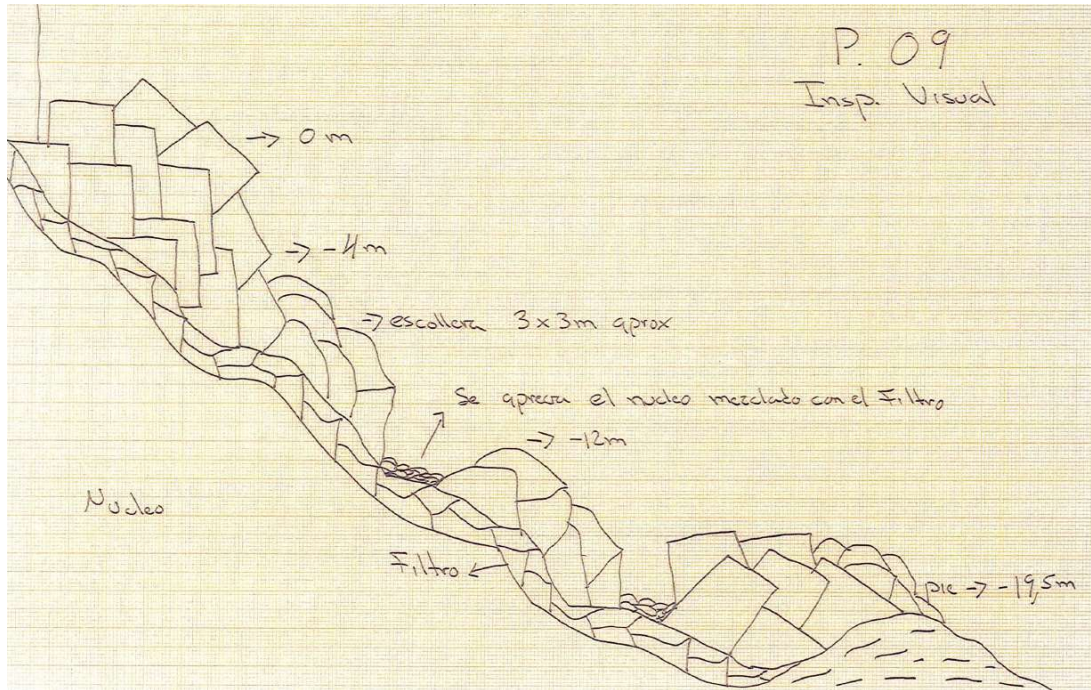 P. 09
Insp. Visual
→ 0 m
→ -4m
→ escollera 3x3m aprox
Se aprecia el nucleo mezclado con el Filtro
→ -12m
Nucleo
Filtro ←
pie → -19,5m